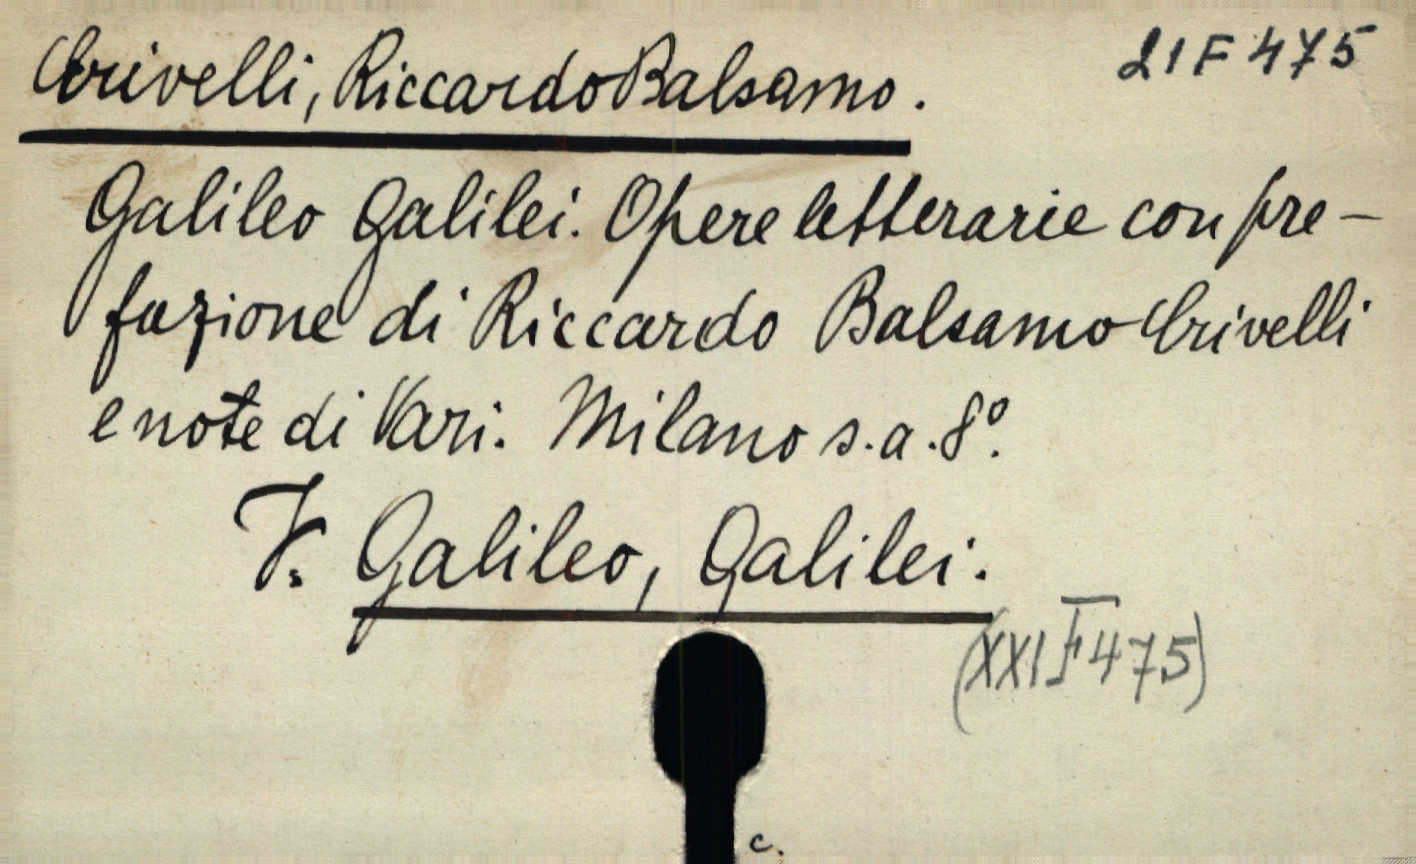 21 F 475
Crivelli, Riccardo Balsamo.
Galileo Galilei. Opere letterarie con pre-
fazione di Riccardo Balsamo Crivelli
e note di Vari. Milano s.a. 8º.
V. Galileo, Galilei.
(XXI F 475)
c.